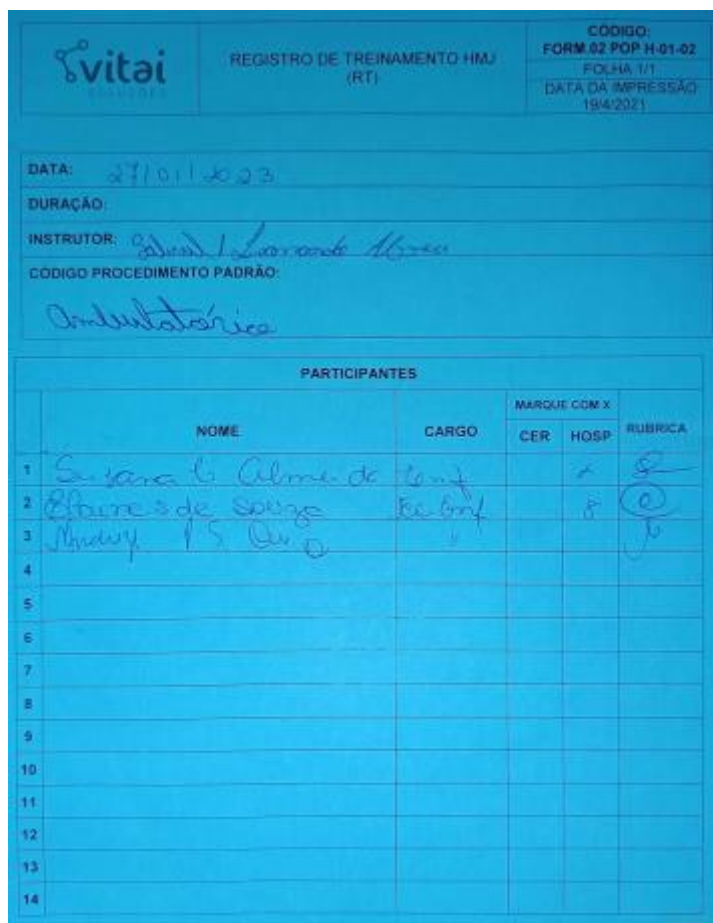 vitai
SOLUÇÕES
REGISTRO DE TREINAMENTO HMJ
(RT)
CÓDIGO:
FORM.02 POP H-01-02
FOLHA 1/1
DATA DA IMPRESSÃO
19/4/2021
DATA: 27/01/2023
DURAÇÃO:
INSTRUTOR: / Leonardo
CÓDIGO PROCEDIMENTO PADRÃO:
Ambulatório
PARTICIPANTES
NOME CARGO MARQUE COM X RUBRICA
CER HOSP
1 Almeida Enf x
2 Elaine s de Souza Tec Enf
3
4
5
6
7
8
9
10
11
12
13
14